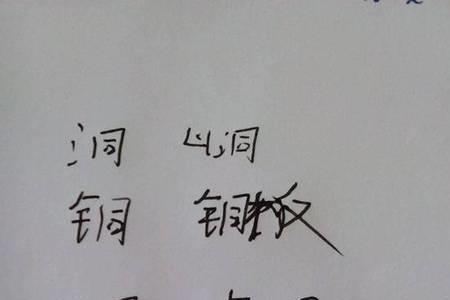 洞 山洞
铜 铜板